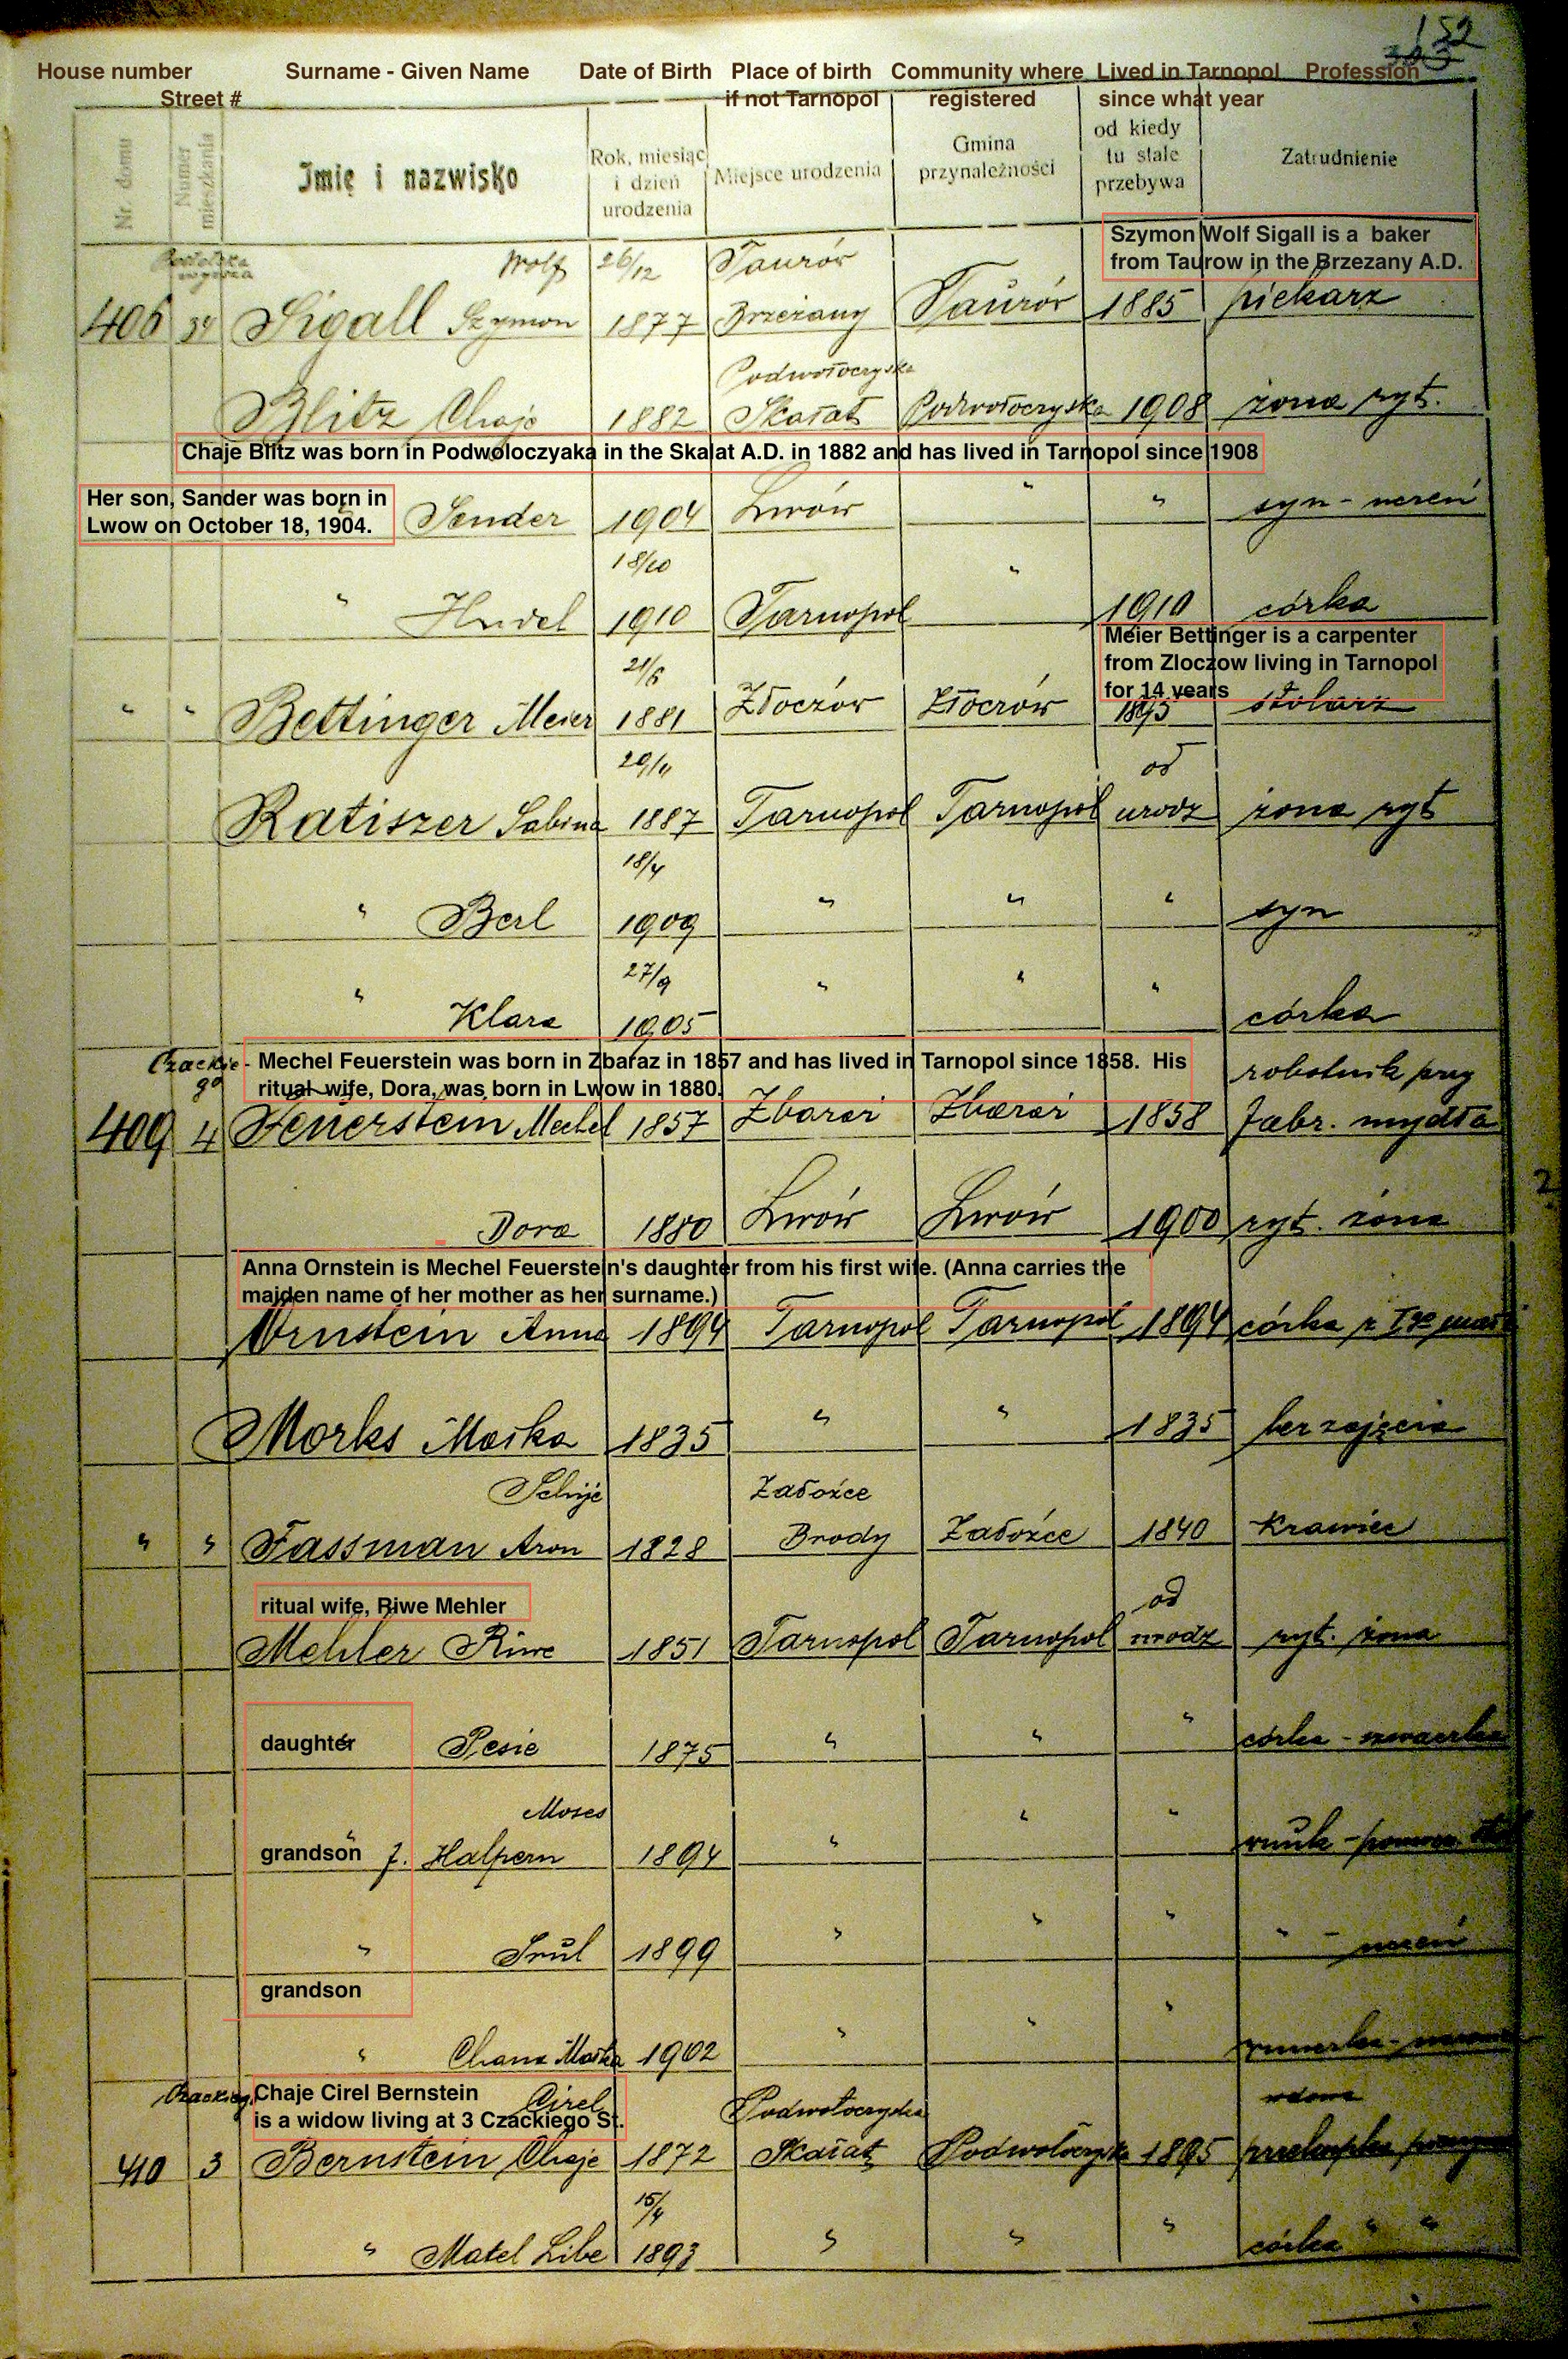 152
House number Surname - Given Name Date of Birth Place of birth Community where Lived in Tarnopol Profession
Street # if not Tarnopol registered since what year
Nr. domu
Numer mieszkania
Imię i nazwisko
Rok, miesiąc
i dzień
urodzenia
Miejsce urodzenia
Gmina
przynależności
od kiedy
tu stale
przebywa
Zatrudnienie
Szymon Wolf Sigall is a baker
from Taurow in the Brzezany A.D.
Wolf 26/12 Taurów
406 Sigall Szymon 1877 Brzeżany Taurów 1885 piekarz
Podwołoczyska
Blitz Chaje 1882 Skałat Podwołoczyska 1908 żona ryt.
Chaje Blitz was born in Podwoloczyaka in the Skalat A.D. in 1882 and has lived in Tarnopol since 1908
Her son, Sander was born in
Lwow on October 18, 1904.
Sender 1904 Lwów " " syn - uczeń
18/10
" Hudel 1910 Tarnopol " 1910 córka
Meier Bettinger is a carpenter
from Zloczow living in Tarnopol
for 14 years
21/6
" " Bettinger Meier 1881 Złoczów Złoczów 1895 stolarz
20/11 od
Ratiszer Sabina 1887 Tarnopol Tarnopol urodz żona ryt
18/4
" Berl 1909 " " " syn
27/9
" Klara 1905 " " " córka
Czackie-
go
Mechel Feuerstein was born in Zbaraz in 1857 and has lived in Tarnopol since 1858. His
ritual wife, Dora, was born in Lwow in 1880.
robotnik przy
409 4 Feuerstein Mechel 1857 Zbaraż Zbaraż 1858 fabr. mydła
Dora 1880 Lwów Lwów 1900 ryt. żona
Anna Ornstein is Mechel Feuerstein's daughter from his first wife. (Anna carries the
maiden name of her mother as her surname.)
Ornstein Anna 1894 Tarnopol Tarnopol 1894 córka z
Morks Maśka 1835 " " 1835 bez zajęcia
Schije Załoźce
" " Fassman Aron 1828 Brody Załoźce 1840 Krawiec
ritual wife, Riwe Mehler
od
Mehler Riwe 1851 Tarnopol Tarnopol urodz ryt. żona
daughter " Pesie 1875 " " " córka - szwaczka
Moses
grandson " f. Halpern 1894 " " " wnuk -
" Srul 1899 " " " " - uczeń
grandson
" Chana Maśka 1902 " " "
Czackieg.
Chaje Cirel Bernstein
is a widow living at 3 Czackiego St.
Cirel Podwołoczyska wdowa
410 3 Bernstein Chaje 1872 Skałat Podwołoczyska 1895 przekupka
15/4
" Matel Libe 1893 " " " córka " "